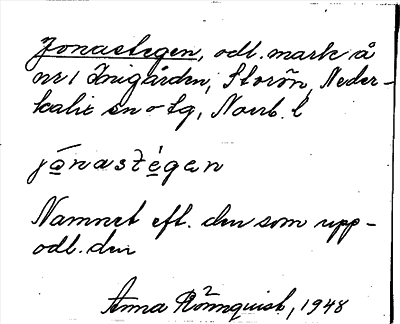 Jonastegen, odl. mark å
nr 1 Inigården, Storön, Neder-
kalix sn o tg, Norrb. l
jo̲nastègan
Namnet eft. den som upp-
odl. den
Anna Rönnquist, 1948